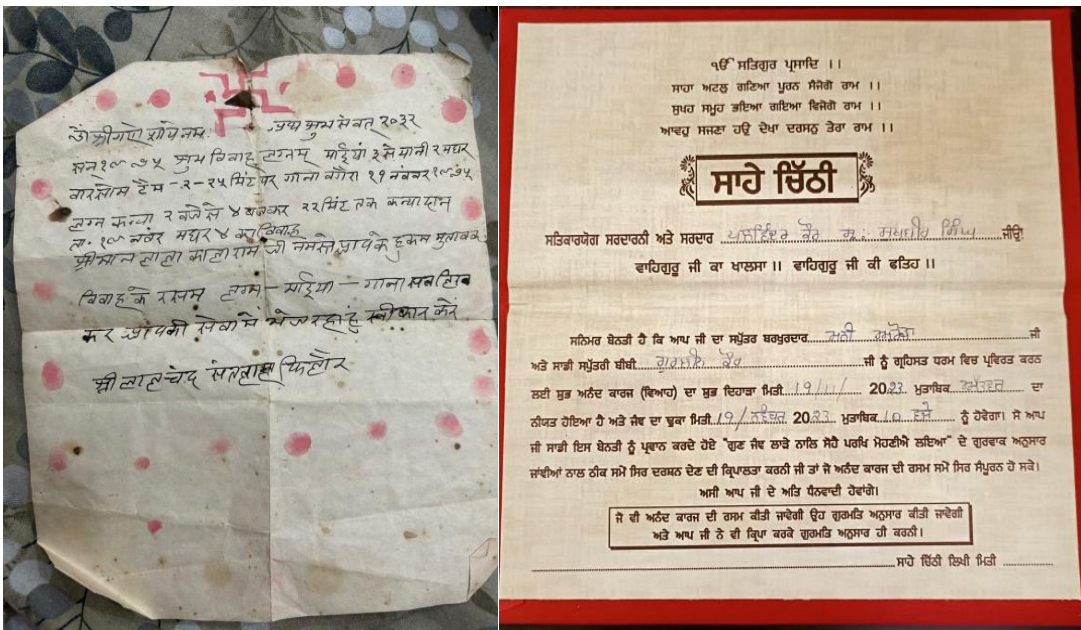 ॐ श्री गणेशाय नम. अथ शुभ संवत् २०३२
सन १९७५ शुभ विवाह लग्नम् माईया २ से यानी २ मघर
वार सोम टैम - २-२५ मिंट पर गाना वगैरा ११ नवम्बर १९७५
लग्न कन्या २ बजे से ४ बजकर २२ मिंट तक कन्यादान
ता. १९ नवंबर मघर ४ का विवाह
श्रीमान लाला काला राम जी नमस्ते आपके हुकम मुताबक
विवाह के रसम लग्न - माईया - गाना सब लिख
कर आपकी सेवा में भेज रहा हुं स्वीकार करें
श्री लालचंद सतपाल फिलौर
ੴ ਸਤਿਗੁਰ ਪ੍ਰਸਾਦਿ ।।
ਸਾਹਾ ਅਟਲੁ ਗਣਿਆ ਪੂਰਨ ਸੰਜੋਗੋ ਰਾਮ ।।
ਸੁਖਹ ਸਮੂਹ ਭਇਆ ਗਇਆ ਵਿਜੋਗੋ ਰਾਮ ।।
ਆਵਹੁ ਸਜਣਾ ਹਉ ਦੇਖਾ ਦਰਸਨੁ ਤੇਰਾ ਰਾਮ ।।
ਸਾਹੇ ਚਿੱਠੀ
ਸਤਿਕਾਰਯੋਗ ਸਰਦਾਰਨੀ ਅਤੇ ਸਰਦਾਰ ਪਲਵਿੰਦਰ ਕੌਰ ਸ: ਸਿੰਘ ਜੀਉ!
ਵਾਹਿਗੁਰੂ ਜੀ ਕਾ ਖਾਲਸਾ ।। ਵਾਹਿਗੁਰੂ ਜੀ ਕੀ ਫਤਿਹ ।।
ਸਨਿਮਰ ਬੇਨਤੀ ਹੈ ਕਿ ਆਪ ਜੀ ਦਾ ਸਪੁੱਤਰ ਬਰਖੁਰਦਾਰ ਸਨੀ ਜੀ
ਅਤੇ ਸਾਡੀ ਸਪੁੱਤਰੀ ਬੀਬੀ ਕੌਰ ਜੀ ਨੂੰ ਗ੍ਰਹਿਸਤ ਧਰਮ ਵਿਚ ਪ੍ਰਵਿਰਤ ਕਰਨ
ਲਈ ਸ਼ੁਭ ਅਨੰਦ ਕਾਰਜ (ਵਿਆਹ) ਦਾ ਸ਼ੁਭ ਦਿਹਾੜਾ ਮਿਤੀ 19/11/ 2023 ਮੁਤਾਬਿਕ ਐਤਵਾਰ ਦਾ
ਨੀਯਤ ਹੋਇਆ ਹੈ ਅਤੇ ਜੰਵ ਦਾ ਢੁਕਾ ਮਿਤੀ 19/ਨਵੰਬਰ 2023 ਮੁਤਾਬਿਕ 10 ਵਜੇ ਨੂੰ ਹੋਵੇਗਾ। ਸੋ ਆਪ
ਜੀ ਸਾਡੀ ਇਸ ਬੇਨਤੀ ਨੂੰ ਪ੍ਰਵਾਨ ਕਰਦੇ ਹੋਏ "ਗੁਣ ਜੰਵ ਲਾੜੇ ਨਾਲਿ ਸੋਹੈ ਪਰਖਿ ਮੋਹਣੀਐ ਲਇਆ" ਦੇ ਗੁਰਵਾਕ ਅਨੁਸਾਰ
ਜਾਂਵੀਆਂ ਨਾਲ ਠੀਕ ਸਮੇਂ ਸਿਰ ਦਰਸ਼ਨ ਦੇਣ ਦੀ ਕ੍ਰਿਪਾਲਤਾ ਕਰਨੀ ਜੀ ਤਾਂ ਜੋ ਅਨੰਦ ਕਾਰਜ ਦੀ ਰਸਮ ਸਮੇਂ ਸਿਰ ਸੰਪੂਰਨ ਹੋ ਸਕੇ।
ਅਸੀ ਆਪ ਜੀ ਦੇ ਅਤਿ ਧੰਨਵਾਦੀ ਹੋਵਾਂਗੇ।
ਜੋ ਵੀ ਅਨੰਦ ਕਾਰਜ ਦੀ ਰਸਮ ਕੀਤੀ ਜਾਵੇਗੀ ਉਹ ਗੁਰਮਤਿ ਅਨੁਸਾਰ ਕੀਤੀ ਜਾਵੇਗੀ
ਅਤੇ ਆਪ ਜੀ ਨੇ ਵੀ ਕ੍ਰਿਪਾ ਕਰਕੇ ਗੁਰਮਤਿ ਅਨੁਸਾਰ ਹੀ ਕਰਨੀ।
ਸਾਹੇ ਚਿੱਠੀ ਲਿਖੀ ਮਿਤੀ